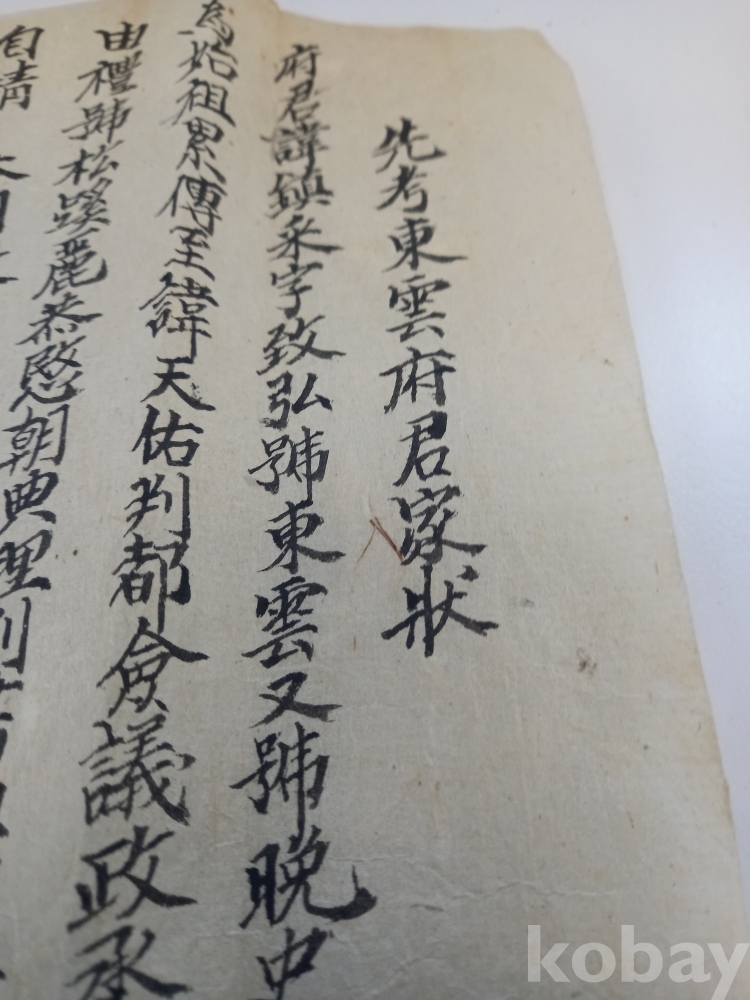 先考東雲府君家狀
府君諱鎮永字致弘號東雲又號晚中
爲始祖累傳至諱天佑判都僉議政丞
由禮號松溪麗恭愍朝典理判
自靖
kobay